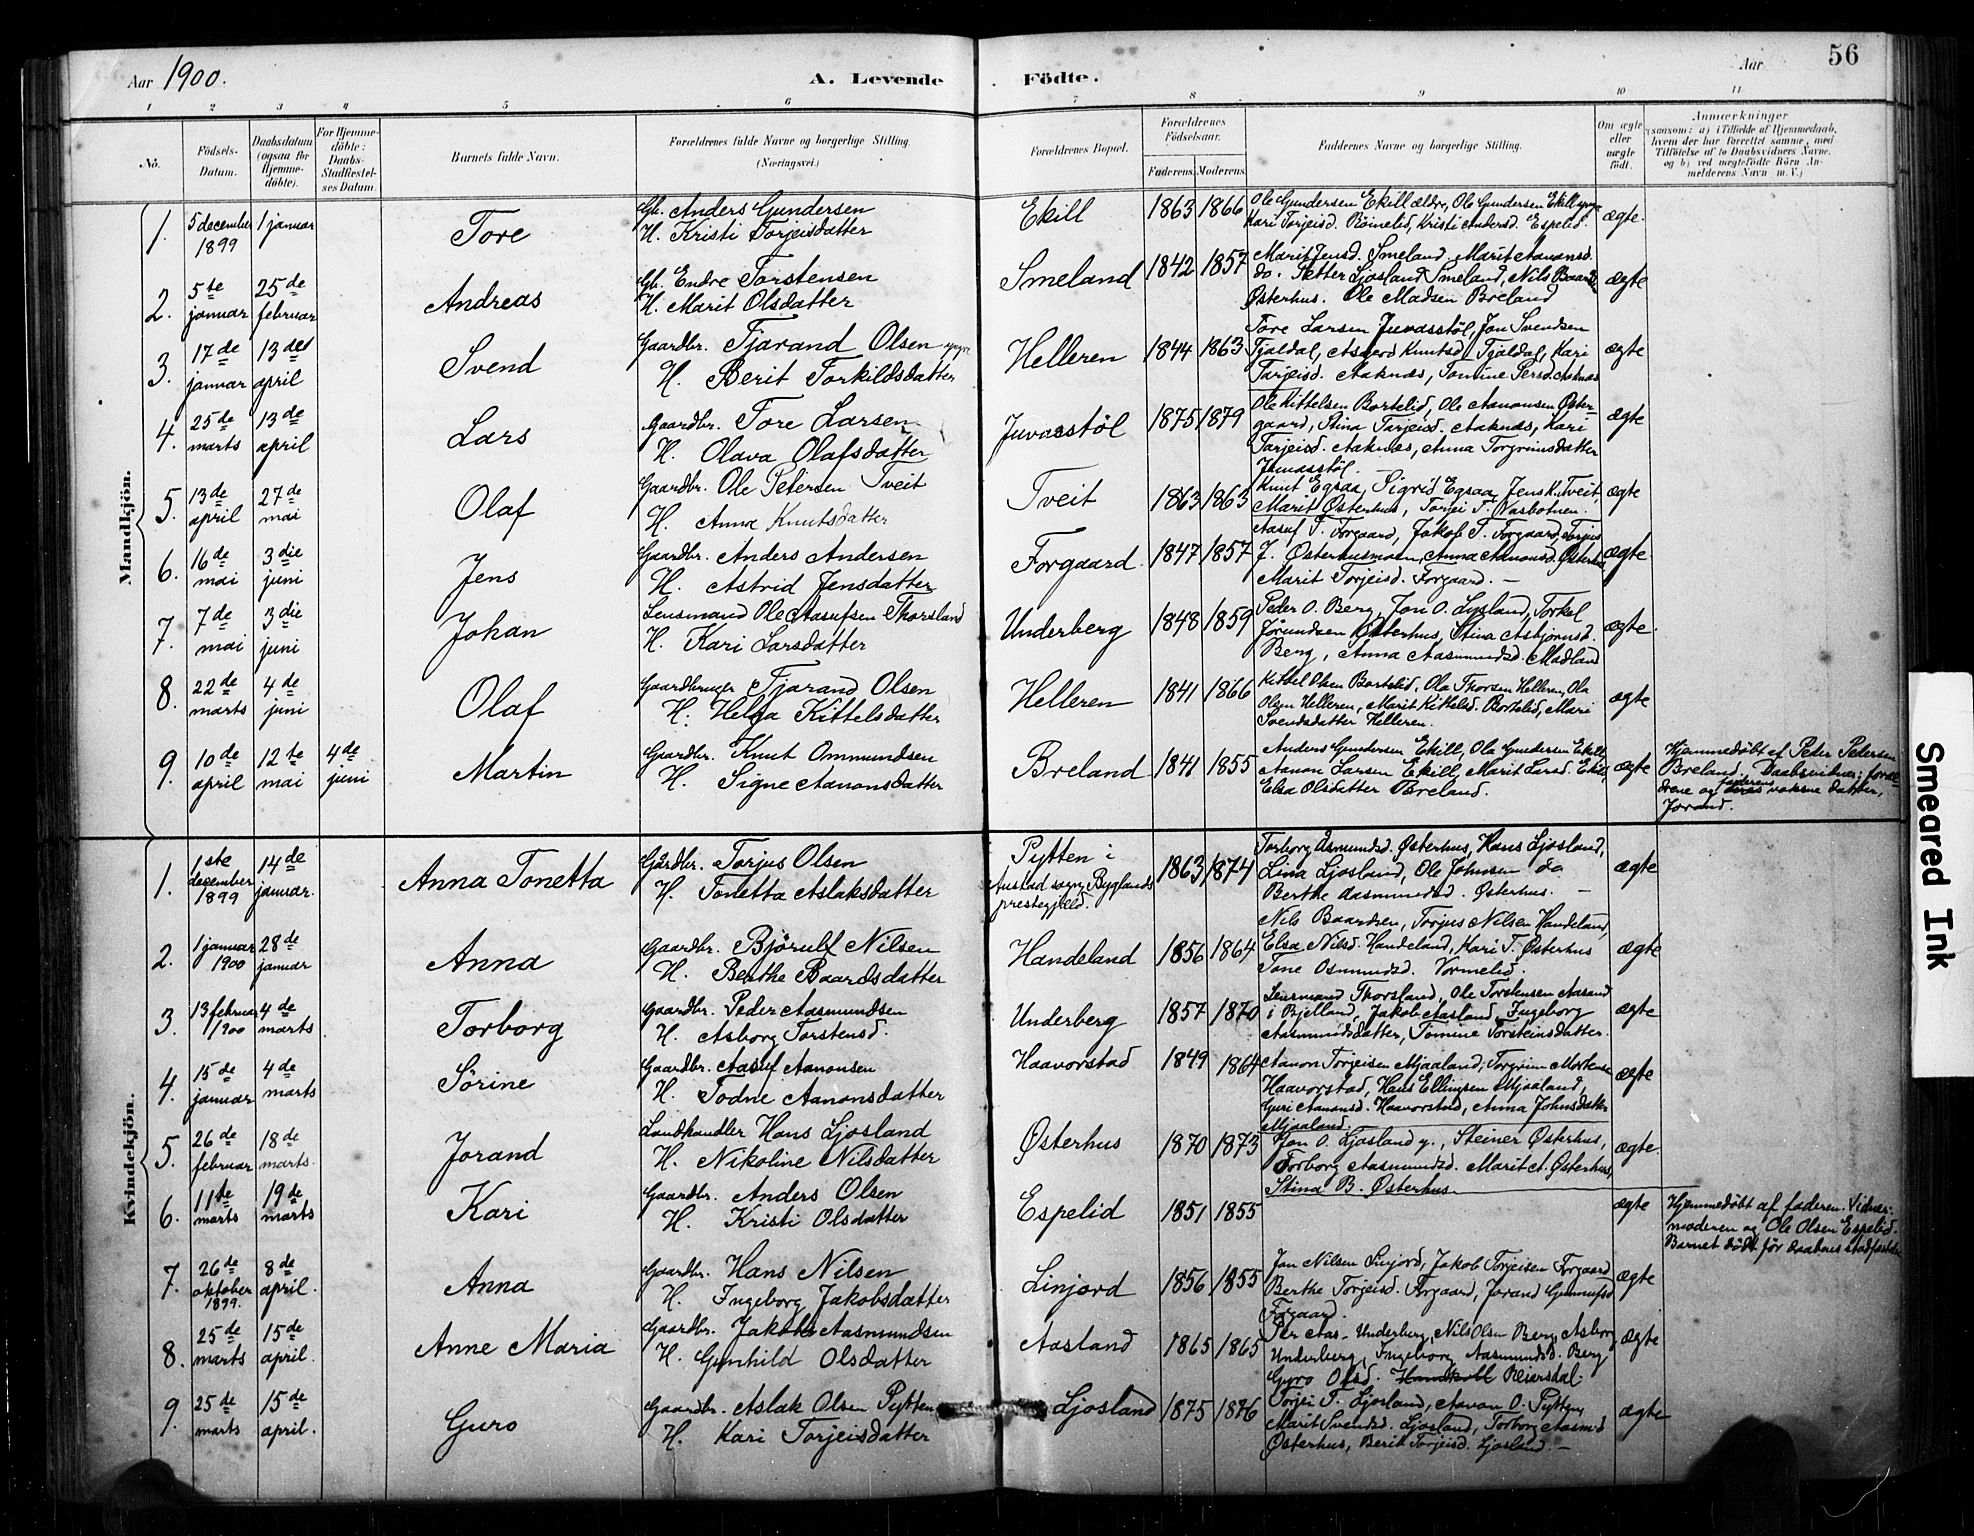 56
Aar 1900.
A. Levende Födte.
Aar
1 2 3 4 5 6 7 8 9 10 11
No.
Födsels-Datum.
Daabsdatum (ogsaa for Hjemme-döbte).
For Hjemme-döbte: Daabs-Stadfæstel-ses Datum.
Barnets fulde Navn.
Forældrenes fulde Navne og borgerlige Stilling. (Næringsvei.)
Forældrenes Bopæl.
Forældrenes Födselsaar.
Faderens. Moderens.
Faddernes Navne og borgerlige Stilling.
Om ægte eller uægte födt.
Anmærkninger
(saasom: a) i Tilfælde af Hjemmedaab,
hvem der har forrettet samme, med
Tilföielse af to Daabsvidners Navne,
og b) ved uægtefödte Börn An-
melderens Navn m. V.)
Mandkjön.
1. 5 december 1899 1 januar Tore
Gb. Anders Gundersen
H. Kristi Torjeisdatter
Ekill 1863 1866
Ole Gundersen Ekill ældre, Ole Gundersen Ekill yngre
Kari Torjeisd. Römelid, Kristi Andersd. Espelid.
ægte.
2. 5te januar 25de februar Andreas
Gb. Endre Torstensen
H. Marit Olsdatter
Smeland 1842 1857
Marit Jensd. Smeland, Marit Aanonsd.
do. Petter Ljosland Smeland, Nils Baards
Østerhus. Ole Madsen Breland
ægte
3. 17de januar 13de april Svend
Gaardbr. Tjarand Olsen yngre
H. Berit Torkildsdatter
Helleren 1844 1863
Tore Larsen Juvasstöl, Jon Svendsen
Tjaldal, Asgerd Knutsd. Tjaldal, Kari
Tarjeisd. Aaknæs, Tomine Persd. Aaknæs
ægte
4. 25de marts 13de april Lars
Gaardbr. Tore Larsen
H. Olava Olafsdatter
Juvasstöl 1875 1879
Ole Kittelsen Bortelid, Ole Aanonsen Øster-
gaard, Stina Tarjeisd. Aaknæs, Kari
Tarjeisd. Aaknæs, Anna Torgrimsdatter
Juvasstöl.
ægte
5. 13de april 27de mai Olaf
Gaardbr. Ole Petersen Tveit
H. Anna Knutsdatter
Tveit 1863 1863
Knut Egsaa, Sigrid Egsaa, Jens K. Tveit
Marit Østerhus, Torjei T. Nasbotnen.
ægte
6. 16de mai 3die juni Jens
Gaardbr. Anders Andersen
H. Astrid Jensdatter
Forgaard. 1847 1857
Aasuf T. Forgaard, Jakob T. Forgaard, Torjus
J. Østerhusmoen, Anna Aanonsd. Østerhus
Marit Torjeisd. Forgaard. —
ægte.
7. 7de mai 3die juni Johan
Lensmand Ole Aasufsen Thorsland
H. Kari Larsdatter
Underberg 1848 1859
Peder O. Berg, Jon O. Ljosland, Torkel
Jörundsen Østerhus, Stina Asbjörnsd.
Berg, Anna Aasmundsd. Madland
ægte.
8. 22de marts 4de juni Olaf
Gaardbruger Tjarand Olsen
H. Helga Kittelsdatter
Helleren 1841 1866
Kittel Olsen Bortelid, Ola Thorsen Helleren, Ola
Olsen Helleren, Marit Kittelsd. Bortelid, Mari
Svendsdatter Helleren.
ægte
9. 10de april 12te mai 4de juni Martin
Gaardbr. Knut Ommundsen
H. Signe Aanonsdatter
Breland 1841 1855
Anders Gundersen Ekill, Ola Gundersen Ekill
Aanon Larsen Ekill, Marit Larsd. Ekill,
Elsa Olsdatter Breland.
ægte
Hjemmedöbt af Peder Pedersen
Breland. Daabsvidner: foræl-
drene og faderens voksne datter,
Jorand.
Kvindekjön.
1. 1ste december 1899 14de januar. Anna Tonetta
Gårdbr. Torjus Olsen
H. Tonetta Aslaksdatter
Pytten i Austad sogn, Byglands prestegjeld. 1863 1874
Torborg Asmundsd. Østerhus, Hans Ljosland,
Lina Ljosland, Ole Johnsen do
Berthe Aasmundsd. Østerhus. —
ægte
2. 1 januar 1900 28de januar Anna
Gaardbr. Björulf Nilsen
H. Berthe Baardsdatter
Handeland 1856 1864
Nils Baardsen, Torjus Nilsen Handeland,
Elsa Nilsd. Handeland, Kari T. Østerhus
Tone Osmundsd. Vormelid.
ægte
3. 13 februar 1900 4de marts Torborg
Gaardbr. Peder Aasmundsen
H. Asborg Torstensd.
Underberg 1857 1870
Lensmand Thorsland, Ole Torstensen Aasand
i Bjelland, Jakob Aasland, Ingeborg
Aasmundsdatter, Tomine Torsteinsdatter.
ægte
4. 15de januar 4de marts Sörine
Gaardbr. Aasuf Aanonsen
H. Todne Aanonsdatter
Haavorstad 1849 1864
Aanon Torjeisen Mjaaland, Torgrim Mortensen
Haavorstad, Hans Ellingsen Mjaaland,
Guri Aanonsd. Haavorstad, Anna Johnsdatter
Mjaaland.
ægte
5. 26de februar 18de marts. Jorand
Landhandler Hans Ljosland
H. Nikoline Nilsdatter
Østerhus 1870 1873
Jon O. Ljosland y., Steiner Østerhus,
Torborg Aasmundsd. Marit A. Østerhus,
Stina B. Østerhus
ægte.
6. 11te marts 19de marts Kari
Gaardbr. Anders Olsen
H. Kristi Olsdatter
Espelid 1851 1855
ægte
Hjemmedöbt af faderen. Vidner:
moderen og Ole Olsen Espelid.
Barnet dödt för daabens stadfæstelse
7. 26de oktober 1899. 8de april. Anna
Gaardbr. Hans Nilsen
H. Ingeborg Jakobsdatter
Linjord 1856 1855
Jon Nilsen Linjord, Jakob Torjeisen Forgaard
Berthe Torjeisd. Forgaard, Jorand Gunnufsd
Forgaard.
ægte
8. 25de marts 15de april. Anne Maria
Gaardbr. Jakob Aasmundsen
H. Gunhild Olsdatter
Aasland 1865 1865
Per Aas- Underberg, Nils Olsen Berg, Asborg
Underberg, Ingeborg Aasmundsd. Berg
Gyro Olsd. Reiersdal.
ægte
9. 25de marts 15de april. Guro
Gaardbr. Aslak Olsen Pytten
H. Kari Torjeisdatter
Ljosland 1875 1876
Torjei T. Ljosland, Aanon O. Pytten,
Marit Svendsd. Ljosland, Torborg Aasmd
Østerhus, Berit Torjeisd. Ljosland. —
ægte
Smeared Ink